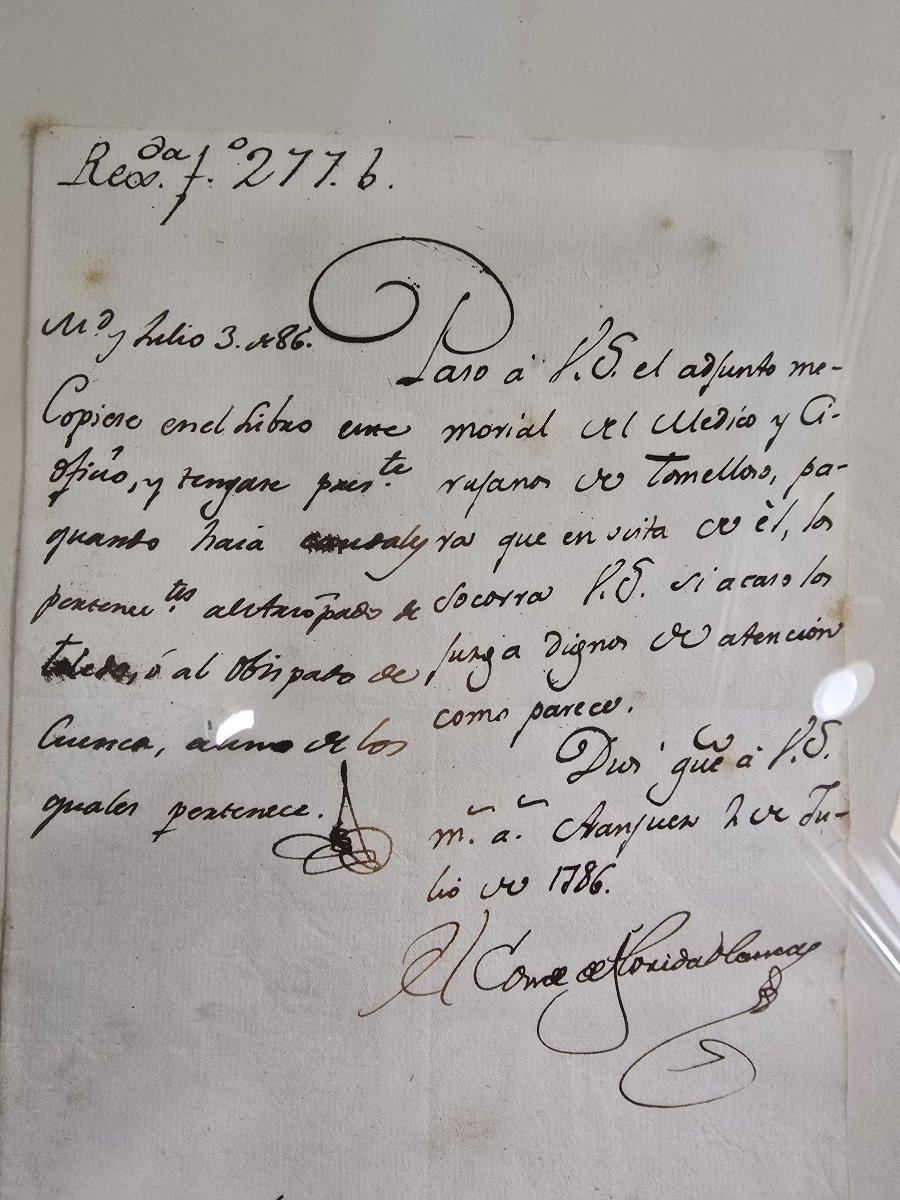 Regda. fo. 277. b.
Md. y Julio 3. de 86.
Copiese en el Libro
oficio, y tengase preste.
quando haia
pertenectes. al Arzõpado de
Toledo, ó al Obispado de
Cuenca, a uno de los
quales pertenece.
Paso à V.S. el adjunto me-
morial del Medico y Ci-
rujanos de Tomelloso, pa-
ra que en vista de èl, los
socorra V.S. si acaso los
juzga dignos de atención
como parece.
Dios gue à V.S.
ms. as. Aranjuez 2 de Ju-
lio de 1786.
El Conde de Floridablanca